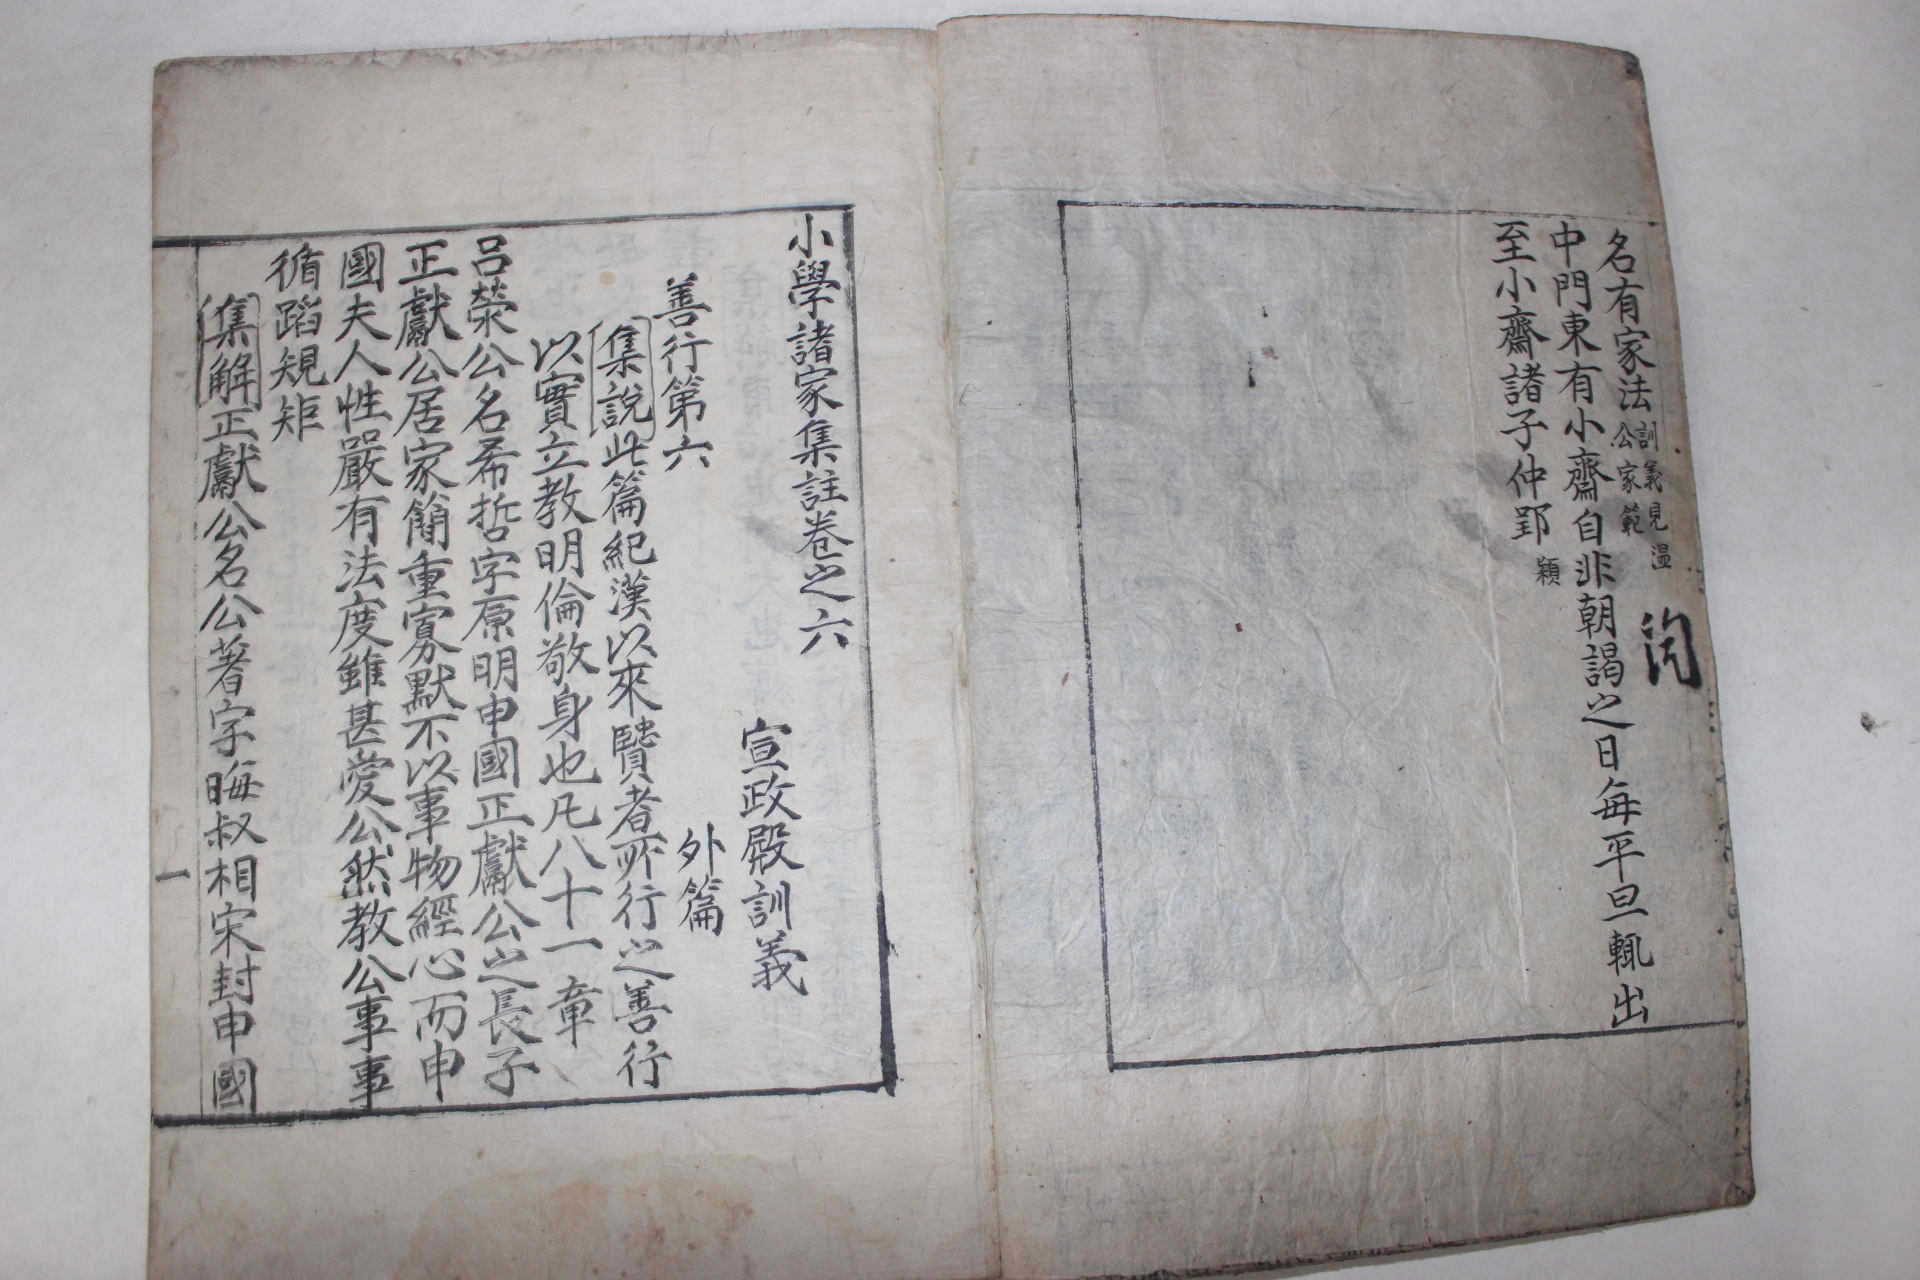 名有家法訓義見溫公家範
中門東有小齋自非朝謁之日每平旦輒出
至小齋諸子仲郢穎
小學諸家集註卷之六
宣政殿訓義
善行第六
外篇
集說此篇紀漢以來賢者所行之善行
以實立教明倫敬身也凡八十一章
呂滎公名希哲字原明申國正獻公之長子
正獻公居家簡重寡默不以事物經心而申
國夫人性嚴有法度雖甚愛公然教公事事
循蹈規矩
集解正獻公名公著字晦叔相宋封申國
一